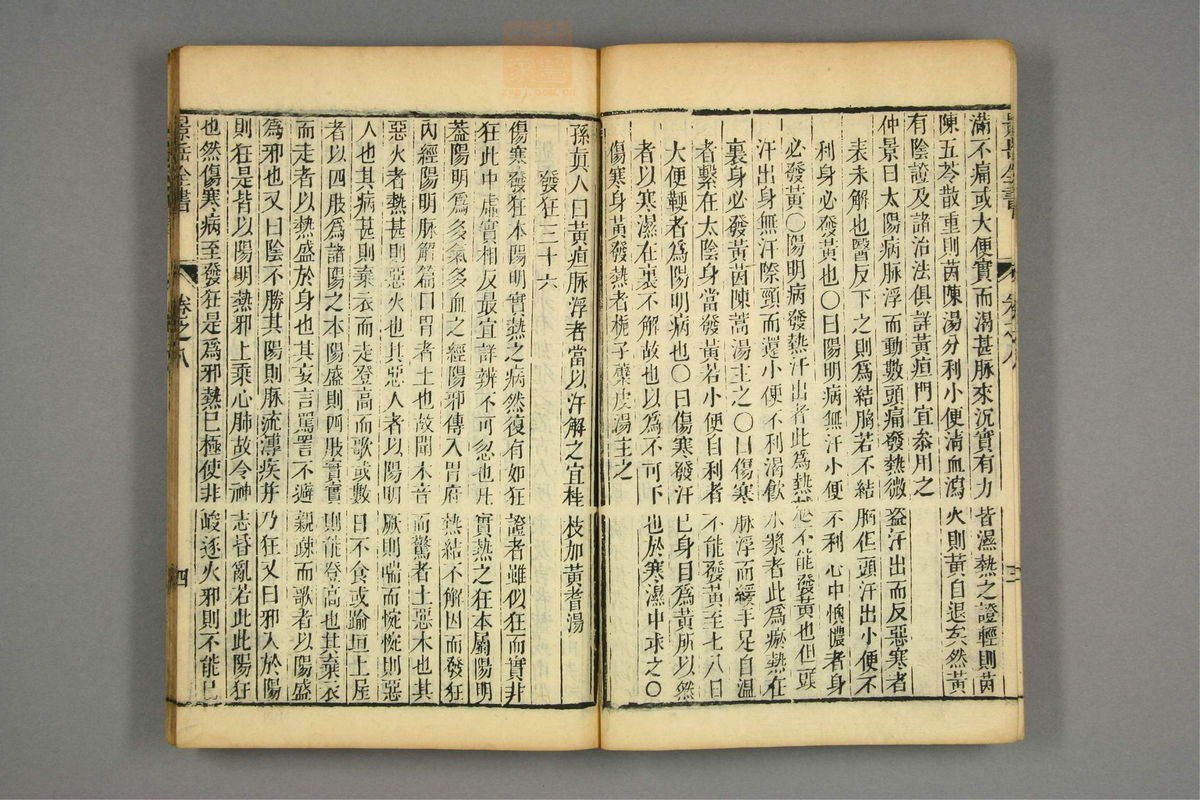 滿不痛或大便實而渴甚脉來沉實有力皆濕熱之證輕則茵
陳五苓散重則茵陳湯分利小便清血瀉火則黃自退矣然黃
有陰證及諸治法俱詳黃疸門宜叅用之
仲景曰太陽病脉浮而動數頭痛發熱微盜汗出而反惡寒者
表未解也醫反下之則爲結胸若不結胸但頭汗出小便不
利身必發黃也〇曰陽明病無汗小便不利心中懊憹者身
必發黃〇陽明病發熱汗出者此爲熱越不能發黃也但頭
汗出身無汗際頸而還小便不利渴飲水漿者此爲瘀熱在
裏身必發黃茵陳蒿湯主之〇曰傷寒脉浮而緩手足自溫
者繫在太陰身當發黃若小便自利者不能發黃至七八日
大便鞕者爲陽明病也〇曰傷寒發汗已身目爲黃所以然
者以寒濕在裏不解故也以爲不可下也於寒濕中求之〇
傷寒身黃發熱者梔子蘗皮湯主之
孫眞人曰黃疸脉浮者當以汗解之宜桂枝加黃耆湯
發狂三十六
傷寒發狂本陽明實熱之病然復有如狂證者雖似狂而實非
狂此中虛實相反最宜詳辨不可忽也凡實熱之狂本屬陽明
葢陽明爲多氣多血之經陽邪傳入胃府熱結不解因而發狂
內經陽明脉解篇曰胃者土也故聞木音而驚者土惡木也其
惡火者熱甚則惡火也其惡人者以陽明厥則喘而惋惋則惡
人也其病甚則棄衣而走登高而歌或數日不食或踰垣上屋
者以四肢爲諸陽之本陽盛則四肢實實則能登高也其棄衣
而走者以熱盛於身也其妄言罵詈不避親疎而歌者以陽盛
爲邪也又曰陰不勝其陽則脉流薄疾并乃狂又曰邪入於陽
則狂是皆以陽明熱邪上乘心肺故令神志昏亂若此此陽狂
也然傷寒病至發狂是爲邪熱已極使非峻逐火邪則不能已
景岳全書
卷之八
四